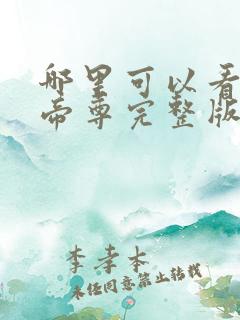 哪里可以看
帝尊完整版
李孝本
未经同意禁止转载